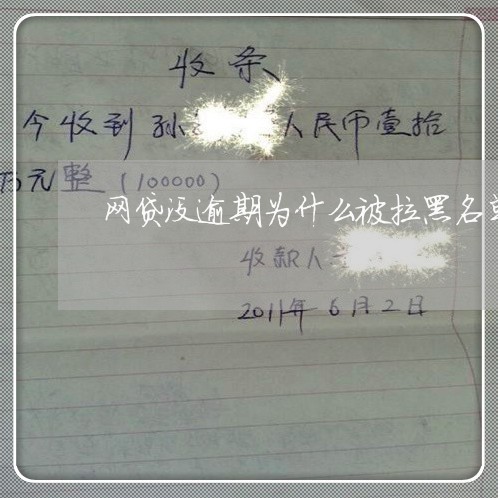 收条
今收到孙 人民币壹拾
万元整(100000)
网贷没逾期为什么被拉黑名
收款人
2011年6月2日